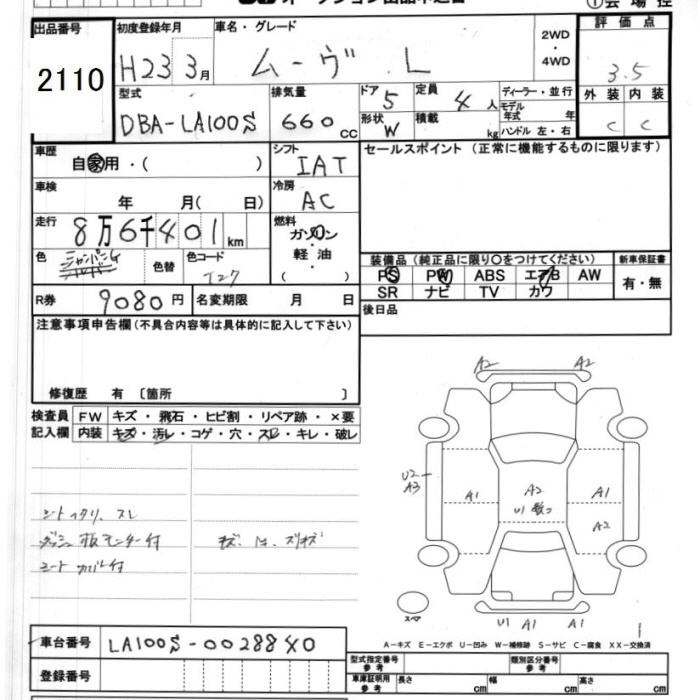 オークション出品申込書
①会場控
出品番号 2110
初度登録年月 H23 3月
車名・グレード ムーヴ L
2WD・4WD
評価点 3.5
外装 C 内装 C
型式 DBA-LA100S
排気量 660 cc
ドア 5
形状 W
定員 4 人
積載 kg
ディーラー・並行
モデル年式 年
ハンドル 左・右
車歴 自家用・( )
シフト IAT
セールスポイント (正常に機能するものに限ります)
車検 年 月( 日)
冷房 AC
走行 8万6千401km
燃料 ガソリン・軽油・( )
色 シャンパンG
色替
色コード T27
装備品 (純正品に限り○をつけてください)
新車保証書 有・無
PS PW ABS エアB AW
SR ナビ TV カワ
R券 9080円
名変期限 月 日
後日品
注意事項申告欄(不具合内容等は具体的に記入して下さい)
修復歴 有 〔箇所 〕
検査員記入欄
FW キズ・飛石・ヒビ割・リペア跡・×要
内装 キズ・汚レ・コゲ・穴・スレ・キレ・破レ
シートヘタリ、スレ
ダッシュ板モニター付
シートカバー付
A2 A2
U2 A3
A1 A2 U1 A1
A2
U1 A1 A1
スペア
A-キズ E-エクボ U-凹み W-補修跡 S-サビ C-腐食 XX-交換済
車台番号 LA100S-0028840
登録番号
型式指定番号 参考
類別区分番号 参考
車庫証明用 参考
長さ cm 幅 cm 高さ cm